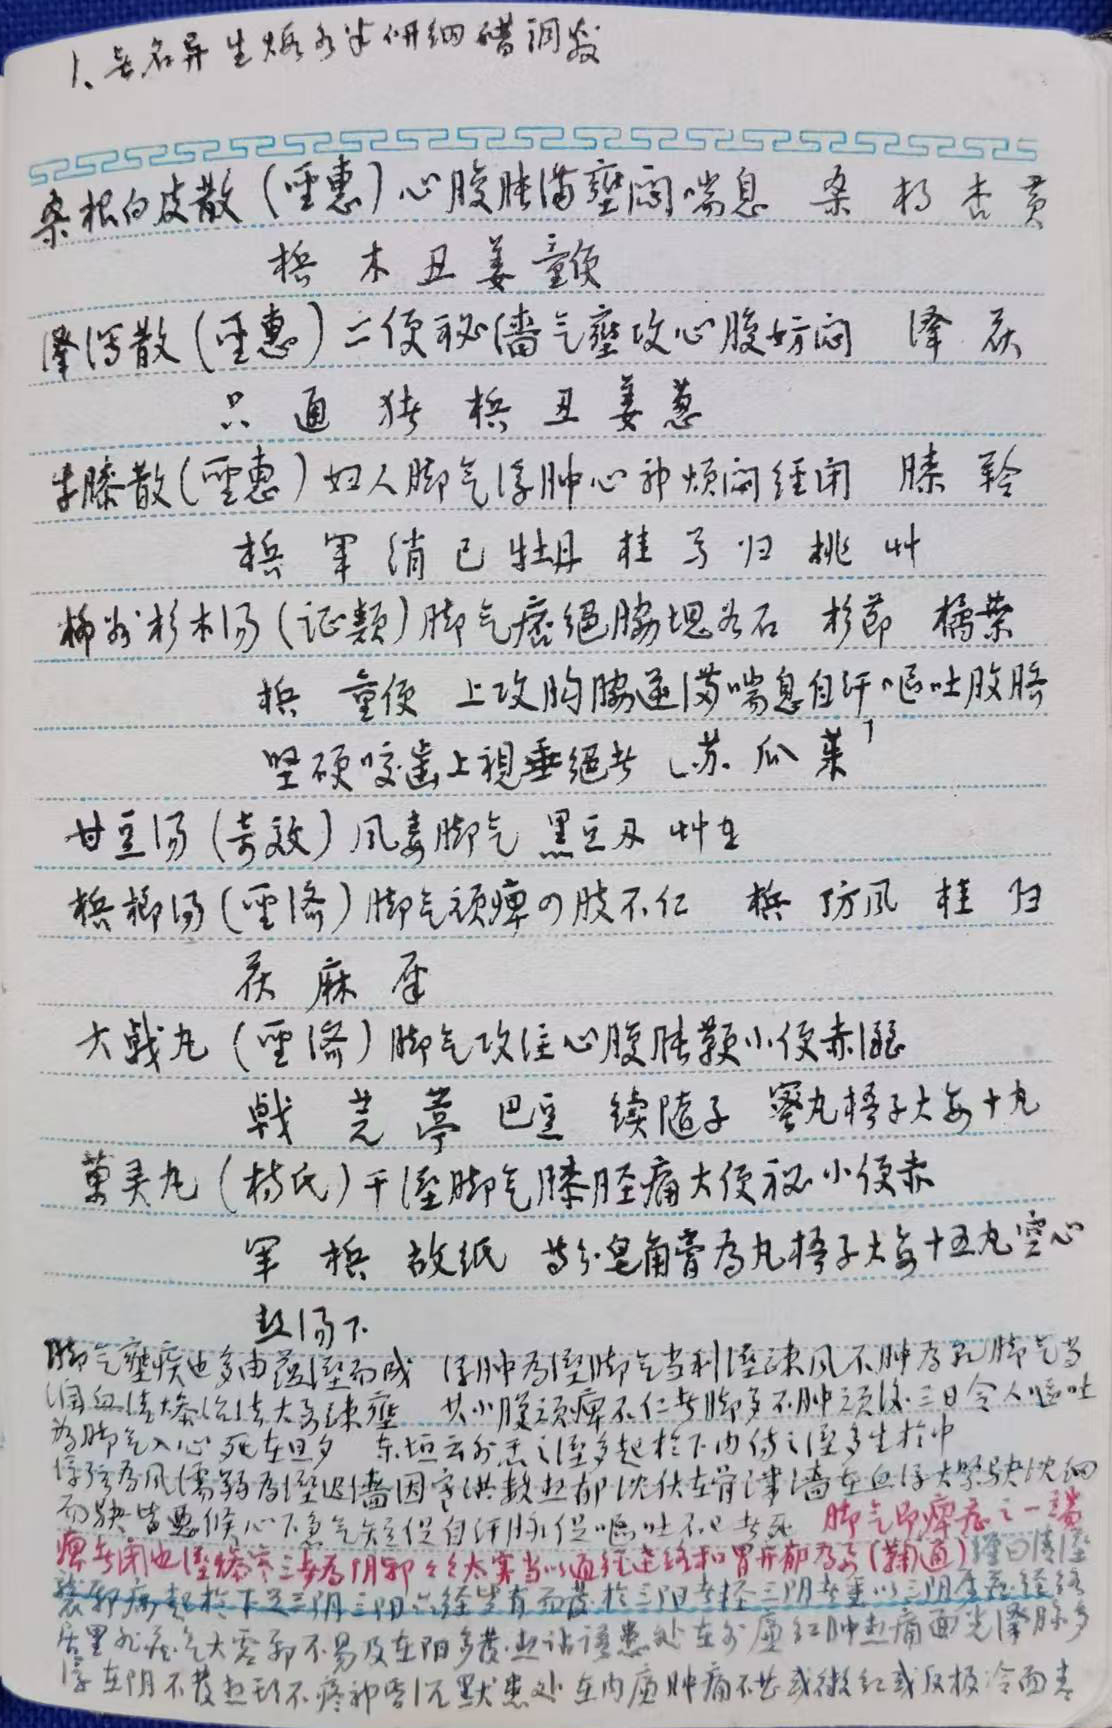 1、无名异 生 研细醋调敷
桑根白皮散（圣惠）心腹胀满壅闷喘息 桑 杏 黄
槟 木 丑 姜 童便
泽泻散（圣惠）二便秘濇气壅攻心腹妨闷 泽 茯
只 通 猪 槟 丑 姜 葱
牛膝散（圣惠）妇人脚气浮肿心神烦闷经闭 膝 羚
槟 军 消 已 牡丹 桂 芍 归 桃 艸
柳州杉木汤（证类）脚气痞絕脇塊如石 杉節 橘葉
槟 童便 上攻胸脇逆满喘息自汗呕吐腹胳
坚硬咬齒上視垂絕者 苏 瓜 莱
甘豆汤（奇效）风毒脚气 黑豆 艸
槟榔汤（圣济）脚气顽痺四肢不仁 槟 防风 桂 归
茯 麻 犀
大戟丸（圣济）脚气攻注心腹胀鞕小便赤濇
戟 芫 葶 巴豆 续隨子 蜜丸梧子大每十丸
萬灵丸（杨氏）干湿脚气膝胫痛大便秘小便赤
军 槟 故纸 等分皂角膏为丸梧子大每十五丸空心
热汤下
脚气壅疾也多由湿而成 浮肿为湿脚气当利湿疎风不肿为干脚气当
润血清燥治法大多疎壅 其小腹顽痺不仁者脚多不肿顽后三日令人呕吐
为脚气入心 死在旦夕 东垣云外之湿多起於下内伤之湿多生於中
浮弦为风濡弱为湿迟濇因寒洪数热郁沈伏在骨濇在血浮大紧駃沈细
而駃皆恶候心下急气短促自汗脉促呕吐不已者死 脚气即痺症之一端
痺者闭也湿燥寒三者为阴邪 太寒当以通经达络和胃开郁为 （鞠通）经曰清湿
袭邪病起於下足三阴三阳六经皆有而发於三阳者轻三阴者重以三阴 经络
居里 气大 邪不易及在阳多发热谵语患处在外廉红肿热痛面光泽脉多
浮在阴不发热 不疼神昏沉默患处在内廉肿痛不甚或微红或反极冷面青